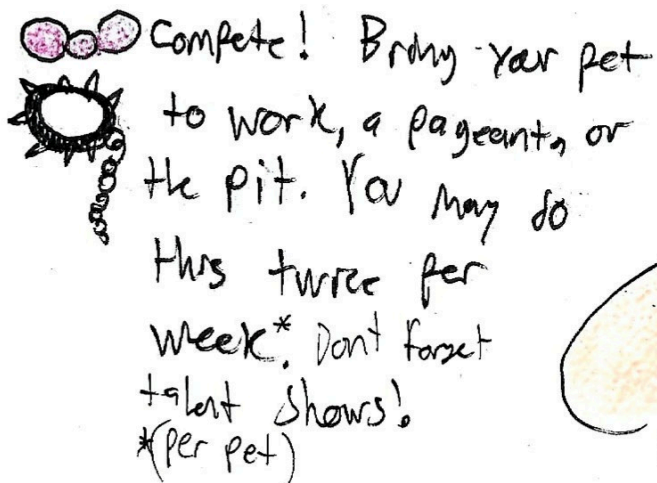 Compete! Bring your pet
to work, a pageant, or
the pit. You may do
this twice per
week*. Dont forget
talent shows!
*(per pet)